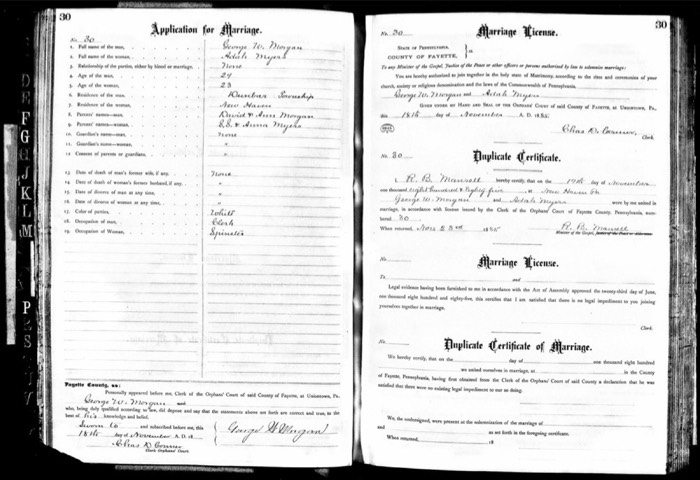 30
Application for Marriage.
No. 30
1. Full name of the man, George W. Morgan
2. Full name of the woman, Adah Myers
3. Relationship of the parties, either by blood or marriage, None
4. Age of the man, 24
5. Age of the woman, 23
6. Residence of the man, Dunbar Township
7. Residence of the woman, New Haven
8. Parents' names—man, David & Ann Morgan
9. Parents' names—woman, & Anna Myers
10. Guardian's name—man, none
11. Guardian's name—woman, "
12. Consent of parents or guardians, "
13. Date of death of man's former wife, if any, None
14. Date of death of woman's former husband, if any, "
15. Date of divorce of man at any time, "
16. Date of divorce of woman at any time, "
17. Color of parties, White
18. Occupation of man, Clerk
19. Occupation of Woman, Spinster
Fayette County, ss:
Personally appeared before me, Clerk of the Orphans' Court of said County of Fayette, at Uniontown, Pa.
George W. Morgan and
who, being duly qualified according to law, did depose and say that the statements above set forth are correct and true, to the
best of his knowledge and belief.
Sworn to and subscribed before me, this
18th day of November A. D. 18
Chas D. Conner
Clerk Orphans' Court.
George W Morgan
30
No. 30 Marriage License.
STATE OF PENNSYLVANIA,
COUNTY OF FAYETTE, ss
To any Minister of the Gospel, Justice of the Peace or other officers or persons authorized by law to solemnize marriage:
You are hereby authorized to join together in the holy state of Matrimony, according to the rites and ceremonies of your
church, society or religious denomination and the laws of the Commonwealth of Pennsylvania.
George W. Morgan and Adah Myers
GIVEN UNDER MY HAND AND SEAL OF THE ORPHANS' COURT OF SAID COUNTY OF FAYETTE, AT UNIONTOWN, PA.,
this 18th day of November A. D. 1885
SEAL
Chas D. Conner, Clerk.
No. 30 Duplicate Certificate.
I, R. B. Mansell hereby certify, that on the 19th day of November
one thousand eight hundred & eighty five, at New Haven Pa
George W. Morgan and Adah Myers were by me united in
marriage, in accordance with license issued by the Clerk of the Orphans' Court of Fayette County, Pennsylvania, num-
bered 30
When returned, Nov 23rd 1885
R. B. Mansell
Minister of the Gospel, Justice of the Peace or Alderman.
No. Marriage License.
To and
Legal evidence having been furnished to me in accordance with the Act of Assembly approved the twenty-third day of June,
one thousand eight hundred and eighty-five, this certifies that I am satisfied that there is no legal impediment to you joining
yourselves together in marriage.
Clerk.
No. Duplicate Certificate of Marriage.
We hereby certify, that on the day of one thousand eight hundred
we united ourselves in marriage, at in the County
of Fayette, Pennsylvania, having first obtained from the Clerk of the Orphans' Court of said County a declaration that he was
satisfied that there was no existing legal impediment to our so doing.
We, the undersigned, were present at the solemnization of the marriage of
and as set forth in the foregoing certificate.
When returned, 18
D
E
F
G
H
I
J
K
L
M
P
S